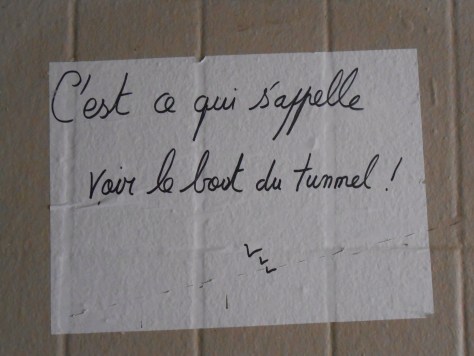 C'est ce qui s'appelle
voir le bout du tunnel !